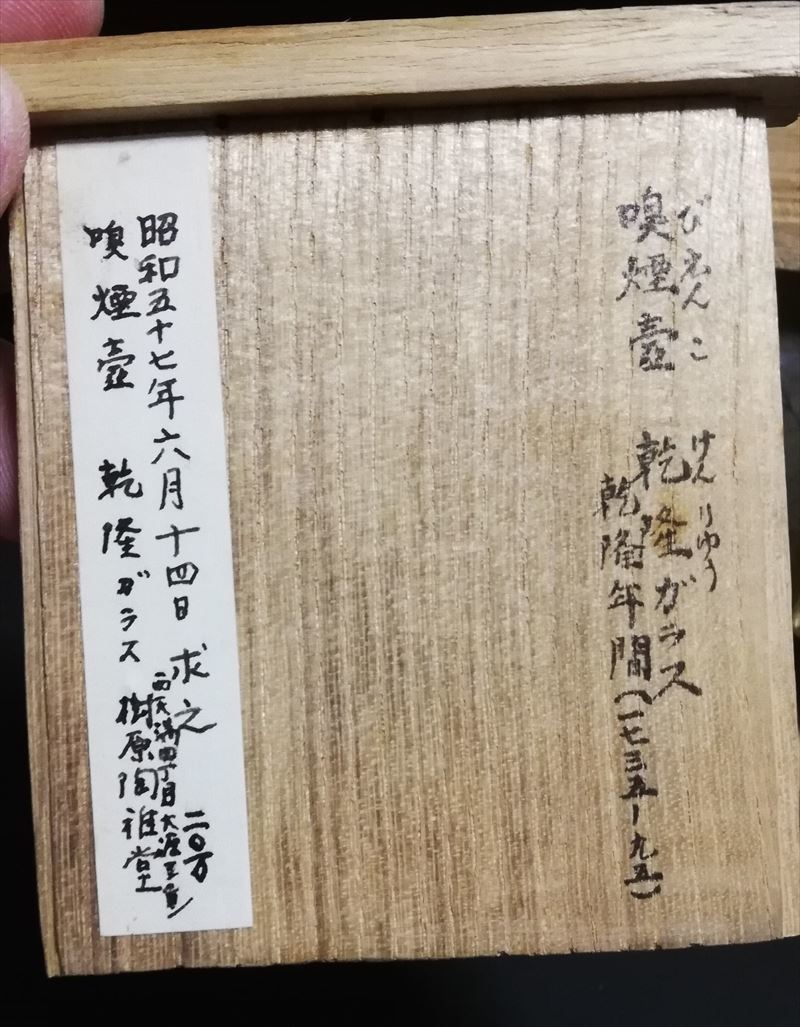 びえんこ
嗅煙壺
けんりゅう
乾隆ガラス
乾隆年間(一七三五ー九五)
昭和五十七年六月十四日 求之 二〇万
嗅煙壺 乾隆ガラス
西天満四丁目大
原陶雅堂